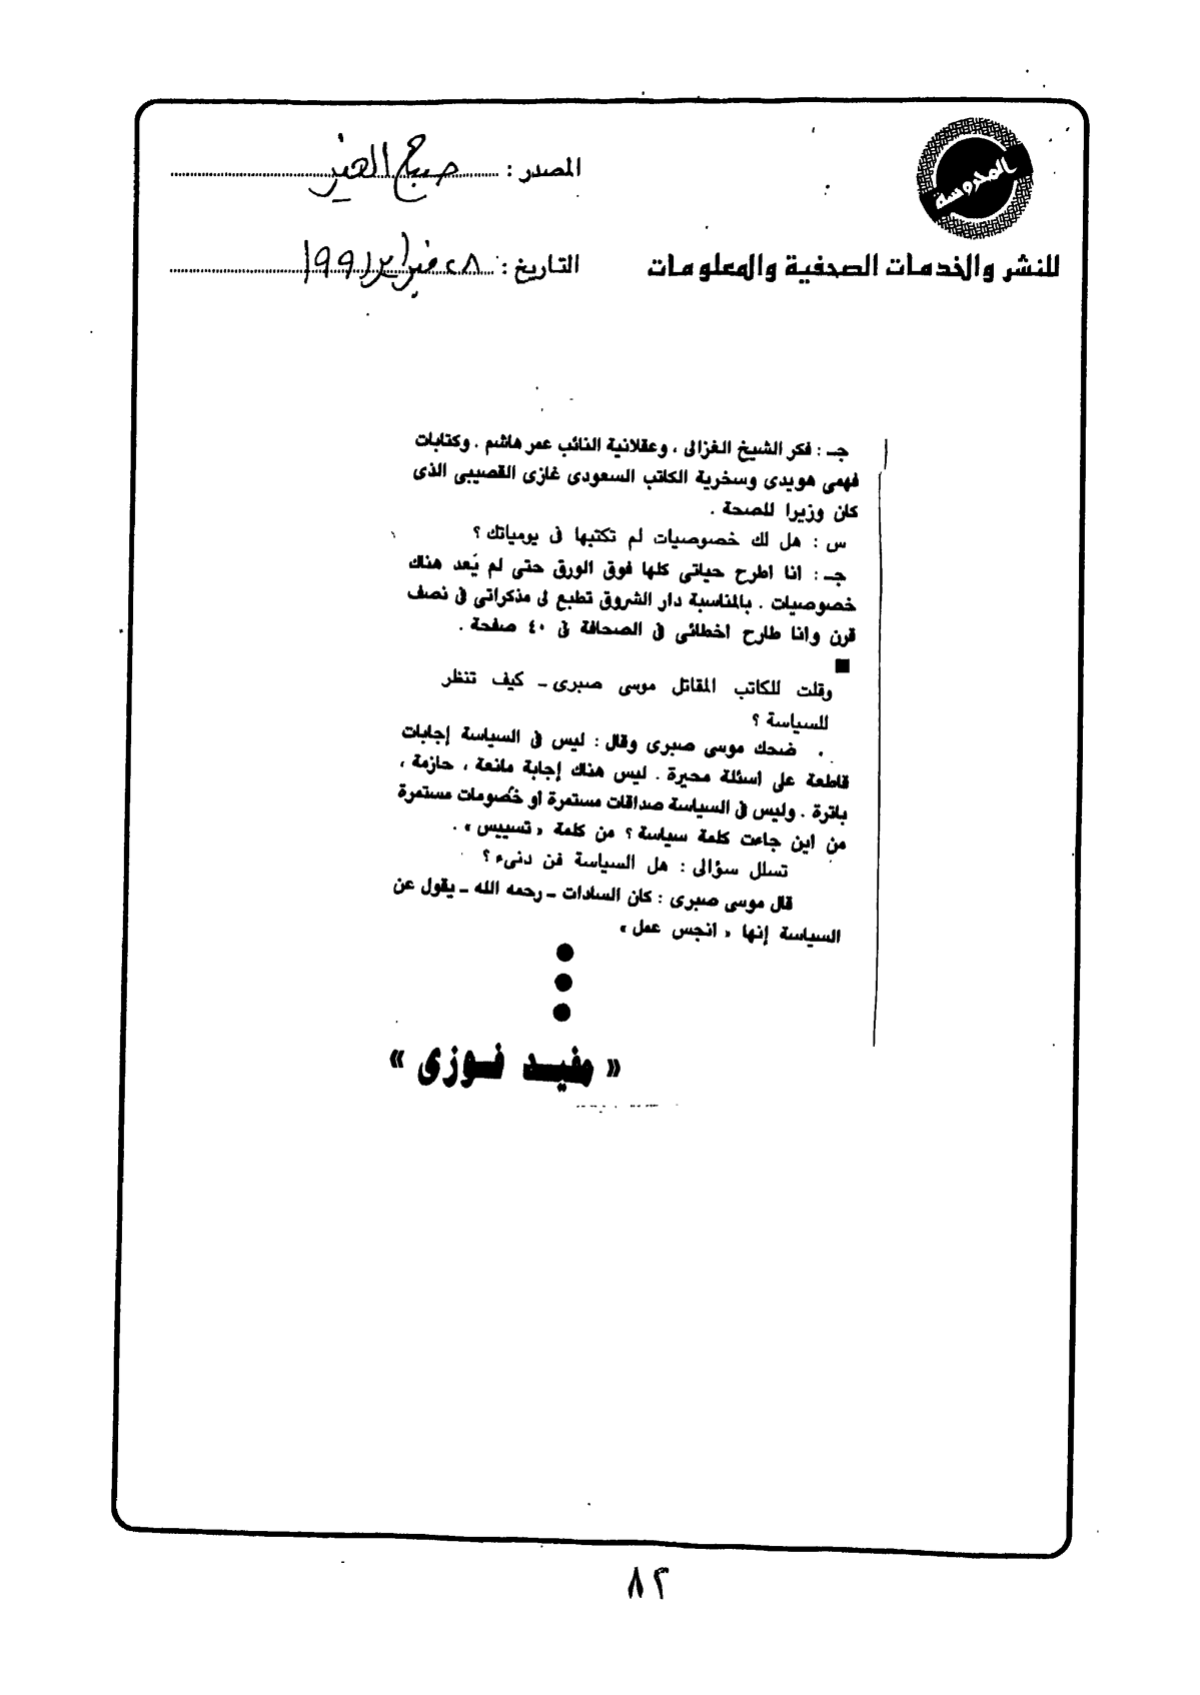 المحروسة
للنشر والخدمات الصحفية والمعلومات
المصدر : صباح الخير
التاريخ : ٢٨ فبراير ١٩٩١
جـ : فكر الشيخ الغزالى ، وعقلانية النائب عمر هاشم . وكتابات
فهمى هويدى وسخرية الكاتب السعودى غازى القصيبى الذى
كان وزيرا للصحة .
س : هل لك خصوصيات لم تكتبها فى يومياتك ؟
جـ : انا اطرح حياتى كلها فوق الورق حتى لم يُعد هناك
خصوصيات . بالمناسبة دار الشروق تطبع لى مذكراتى فى نصف
قرن وانا طارح اخطائى فى الصحافة فى ٤٠ صفحة .
■
وقلت للكاتب المقاتل موسى صبرى ـ كيف تنظر
للسياسة ؟
ضحك موسى صبرى وقال : ليس فى السياسة إجابات
قاطعة على اسئلة محيرة . ليس هناك إجابة مانعة ، حازمة ،
باترة . وليس فى السياسة صداقات مستمرة أو خصومات مستمرة
من اين جاءت كلمة سياسة ؟ من كلمة « تسييس » .
تسلل سؤالى : هل السياسة فن دنىء ؟
قال موسى صبرى : كان السادات ـ رحمه الله ـ يقول عن
السياسة إنها « انجس عمل »
●
●
●
« مفيد فوزى »
٨٢